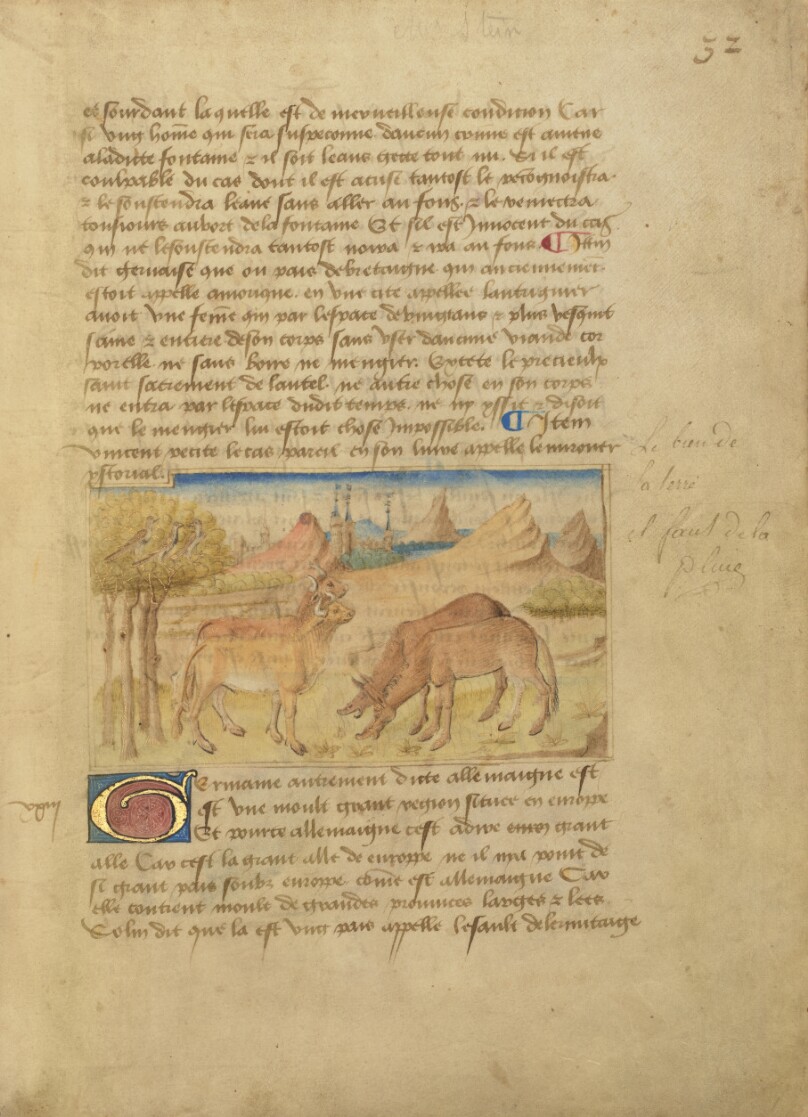 32
et sourdant laquelle est de merveilleuse condition Car
si ung home qui sera suspeconne daucun crime est amene
a ladicte fontaine & il soit leans gecte tout nu. Si il est
coulpable du cas dont il est acuse tantost le recognoistra
& le soustendra leaue sans aller au fons. & le remectra
tousiours au bort de la fontaine Et sil est Innocent du cas
qui ne le soustendra tantost noiera & ira au fons ¶ Item
dit gervaise que ou pais de bretaigne qui anciennement
estoit appelle amorique. en une cite appellee lantriguier
avoit une feme qui par lespace de vingt ans & plus vesquit
saine & entiere de son corps sans user daucune viande cor
porelle ne sans boire ne mengier. Excete le precieulx
saint sacrement de lautel. ne autre chose en son corps
ne entra par lespace dudit temps. ne ny yssit & disoit
que le mengier lui estoit chose Impossible. ¶ Item
vincent recite le cas pareil en son livre appelle le mirouer
ystorial.
Le bau de
la terre
et faut de la
pluie
Germaine autrement dicte allemaigne est
est une moult grant region situee en europpe
Et pource allemaigne cest adire grant
alle Car cest la grant alle de europpe ne il na point de
si grant pais soubz europpe come est allemaigne Car
elle contient moult de grandes provinces larges & lees
Solin dit que la est ung pais appelle le sault de lermitaige